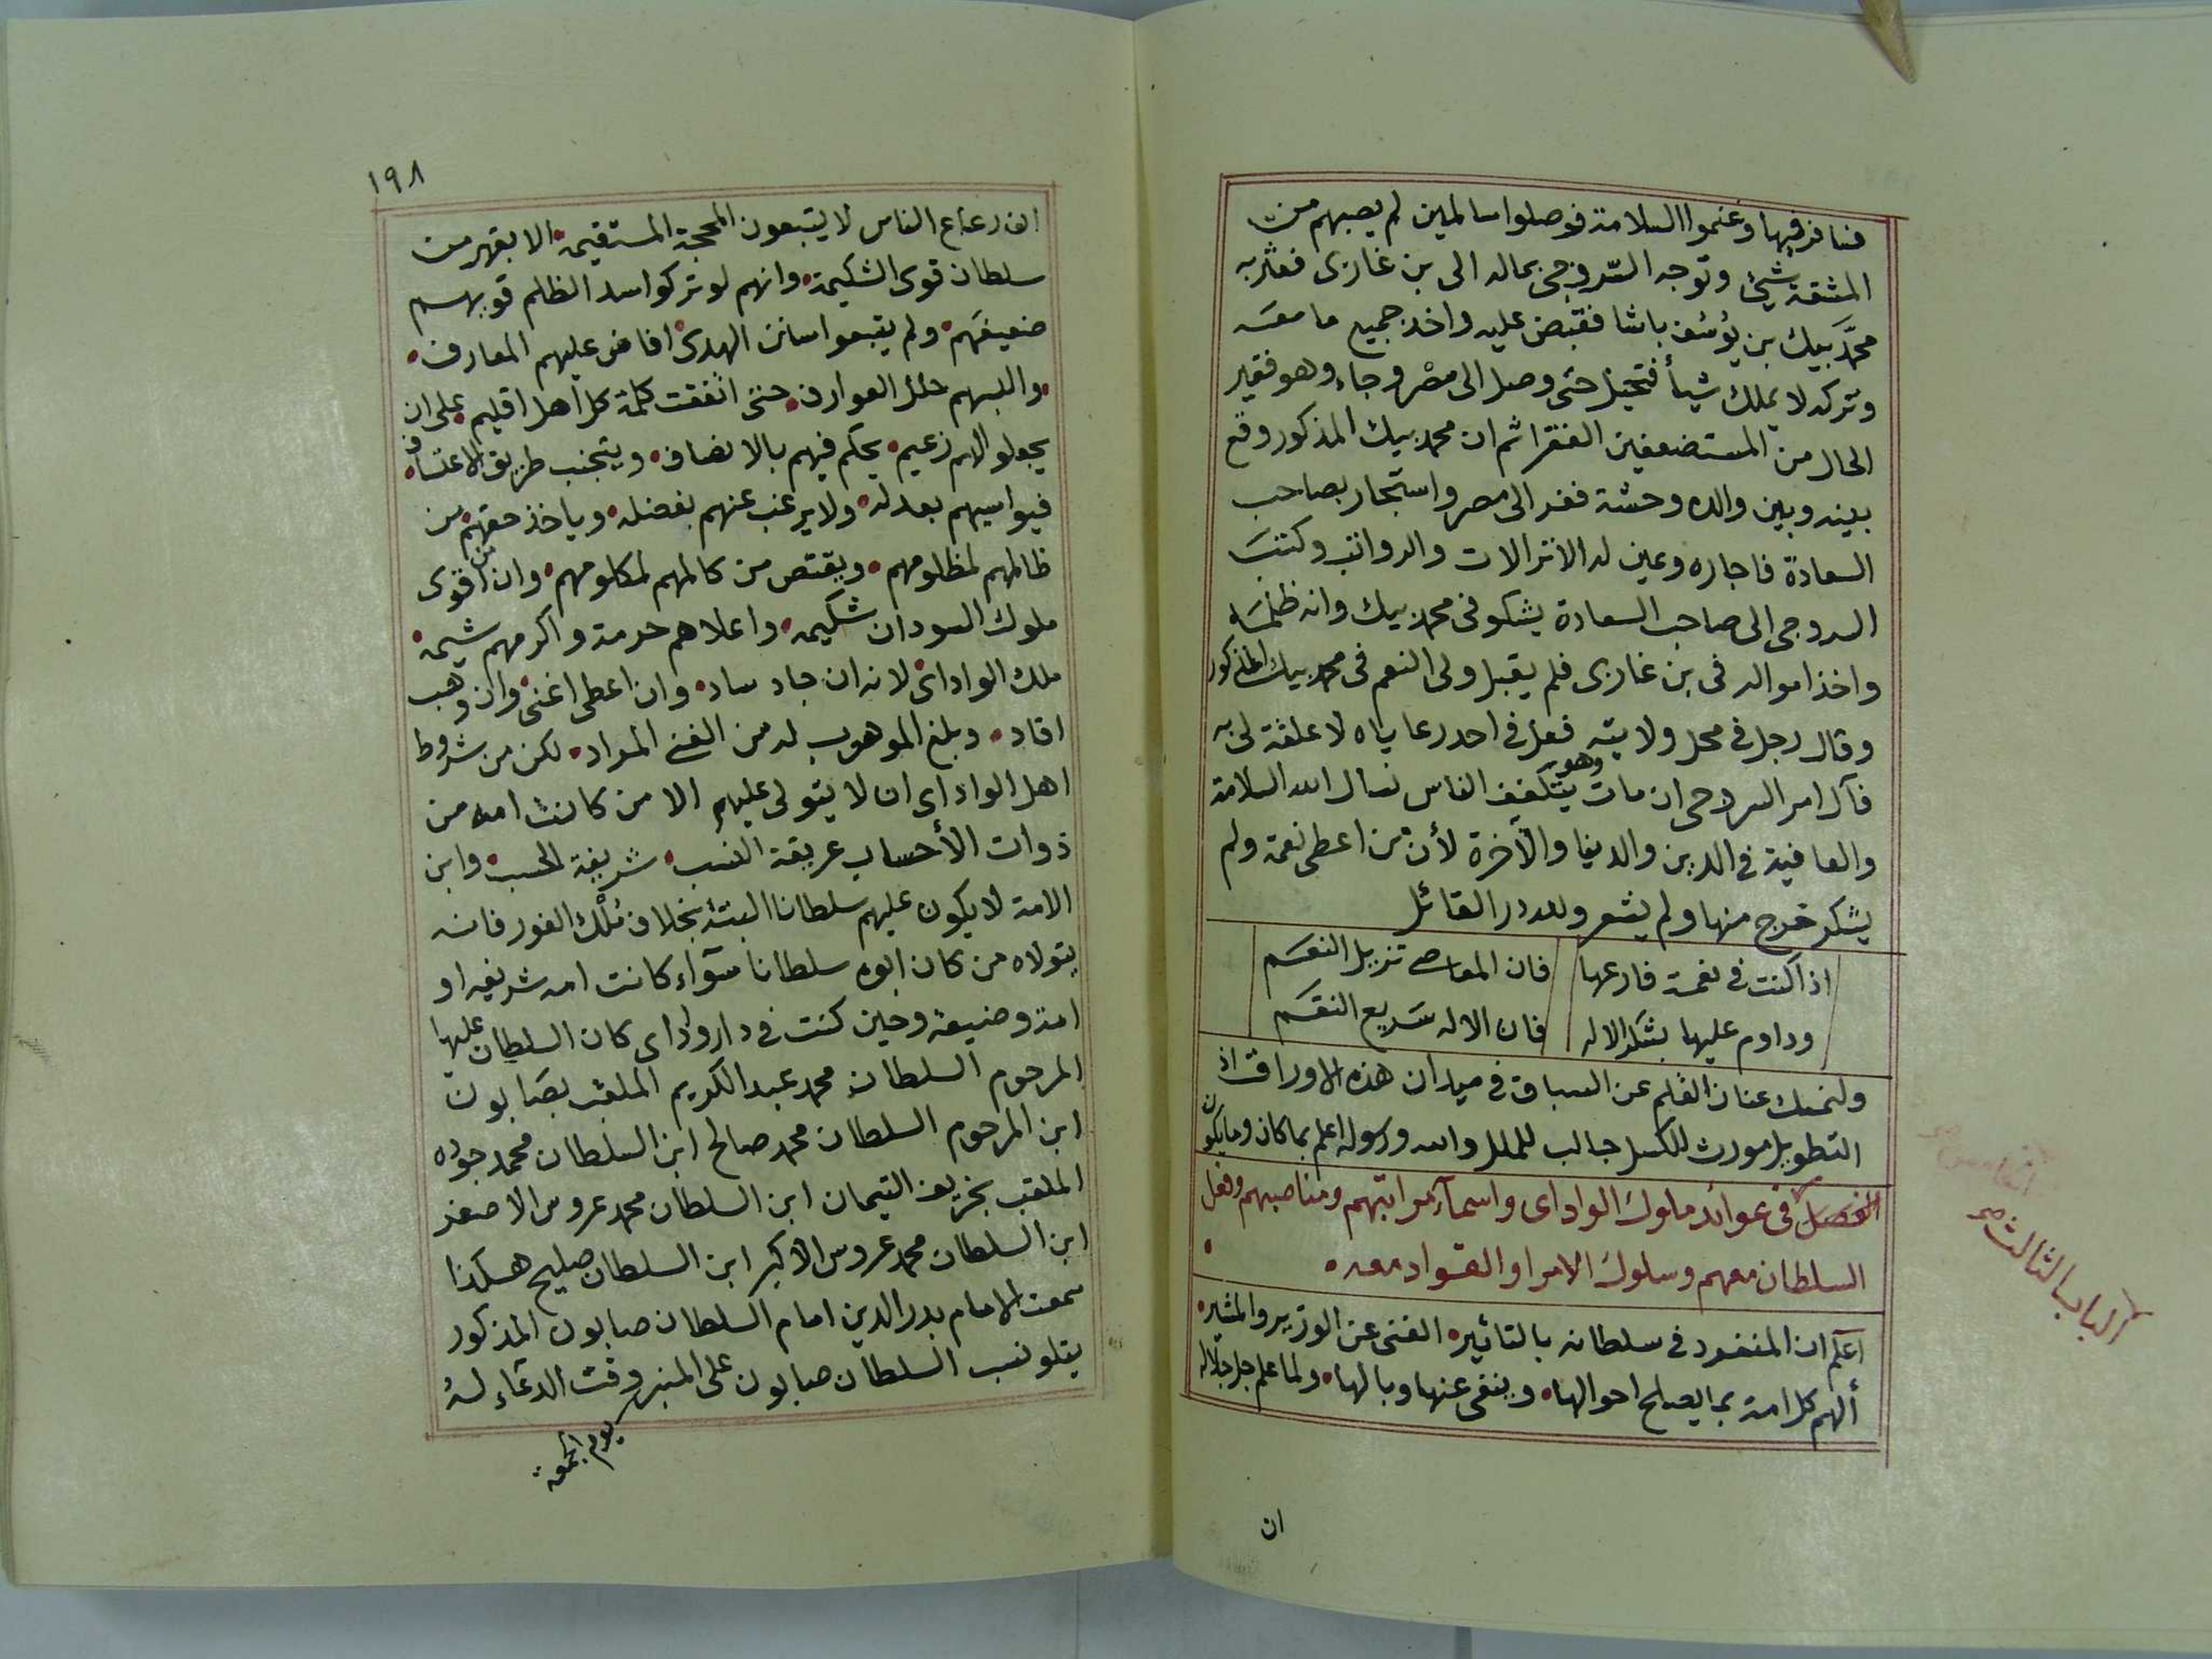 فسافر فيها وغنموا السلامة فوصلوا سالمين لم يصبهم من
المشقة شيئ وتوجه السروجى بماله الى بن غازى فعثر به
محمد بيك بن يوسف باشا فقبض عليه واخذ جميع ما معه
وتركه لا يملك شيأ فتحيل حتى وصل الى مصر وجاء وهو فقير
الحال من المستضعفين الفقرا ثم ان محمد بيك المذكور وقع
بينه وبين والده وحشة ففر الى مصر واستجار بصاحب
السعادة فاجاره وعين له الانزالات والرواتب وكتب
السروجى الى صاحب السعادة يشكو فى محمد بيك وانه ظلمه
واخذ امواله فى بن غازى فلم يقبل ولى النعم فى محمد بيك المذكور
وقال رجل فى محل ولايته فعل فى احد رعاياه لا علقة لى به
فآل امر السروجى ان مات وهو يتكفف الناس نسال الله السلامة
والعافية فى الدين والدنيا والآخرة لأن من اعطى نعمة ولم
يشكر خرج منها ولم يشعر ولله در القائل
اذا كنت فى نعمة فارعها فان المعاصى تزيل النعم
وداوم عليها بشكر الاله فان الاله سريع النقم
ولنمسك عنان القلم عن السباق فى ميدان هذه الاوراق اذ
التطويل مورث للكسل جالب للملل والله ورسوله اعلم بما كان وما يكون
الفصل فى عوائد ملوك الواداى واسمآء مراتبهم ومناصبهم وفعل
السلطان معهم وسلوك الامرا والقواد معه
الباب الثالث
اعلم ان المنفرد فى سلطانه بالتاثير الغنى عن الوزير والمشير
ألهم كل امة بما يصلح احوالها وينفى عنها وبالها ولما علم جل جلاله
ان
١٩٨
ان رعاع الناس لا يتبعون المحجة المستقيمة الا بقهر من
سلطان قوى الشكيمة وانهم لو تركوا سد الظلم قويهم
ضعيفهم ولم يتبعوا سنن الهدى افاض عليهم المعارف
والبسهم حلل العوارف حتى اتفقت كلمة كل اهل اقليم على ان
يجعلوا لهم زعيم يحكم فيهم بالانصاف ويتجنب طريق الاعتساف
فيواسيهم بعدله ولا يرغب عنهم بفضله وياخذ حقهم من
ظالمهم لمظلومهم ويقتص من كالمهم لمكلومهم وان من اقوى
ملوك السودان شكيمه واعلاهم حرمة واكرمهم شيمه
ملك الواداى لانه ان جاد ساد وان اعطى اغنى وان وهب
افاد وبلغ الموهوب له من الغنى المراد لكن من شروط
اهل الواداى ان لا يتولى عليهم الا من كانت امه من
ذوات الأحساب عريقة النسب شريفة الحسب وابن
الامة لا يكون عليهم سلطانا البتة بخلاف ملك الفور فانه
يتولاه من كان ابوه سلطانا سوآء كانت امه شريفه او
امة وضيعة وحين كنت فى دار واداى كان السلطان عليها
المرحوم السلطان محمد عبد الكريم الملقب بصابون
ابن المرحوم السلطان محمد صالح ابن السلطان محمد جوده
الملقب بخريف التيمان ابن السلطان محمد عروس الاصغر
ابن السلطان محمد عروس الاكبر ابن السلطان صليح هكذا
سمعت الامام بدر الدين امام السلطان صابون المذكور
يتلو نسب السلطان صابون على المنبر وقت الدعاء له
يوم الجمعة